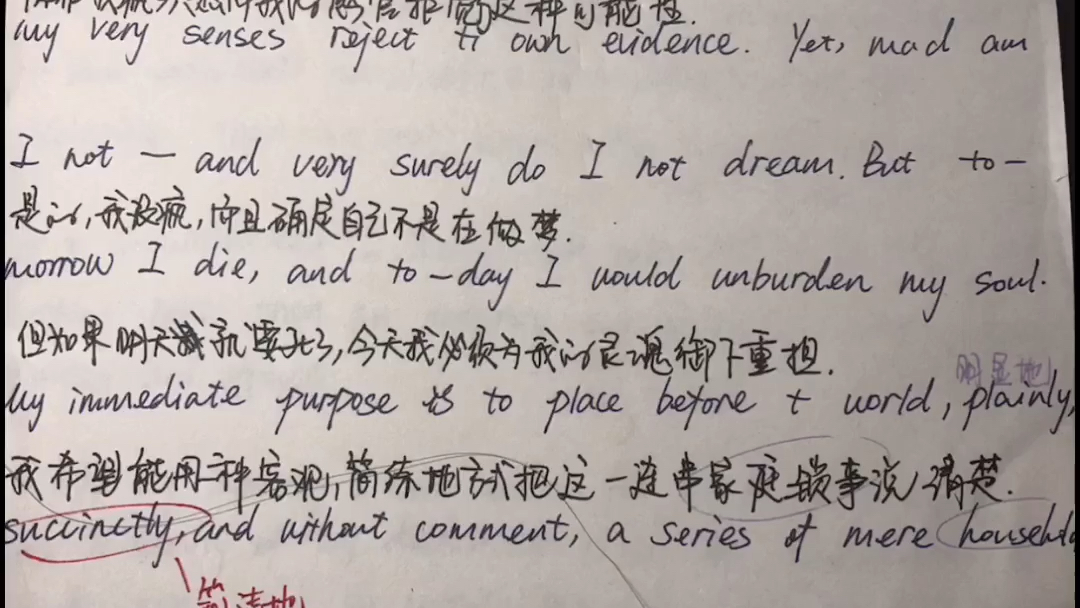 my very senses reject tr own evidence. Yet, mad am
I not — and very surely do I not dream. But to-
是的,我没疯,而且确定自己不是在做梦.
morrow I die, and to-day I would unburden my soul.
但如果明天我就要死了,今天我必须为我的灵魂御下重担.
明显地
My immediate purpose is to place before t world, plainly,
我希望能用种客观,简练地方式把这一连串家庭锁事说清楚.
succinctly, and without comment, a series of mere household
简洁地